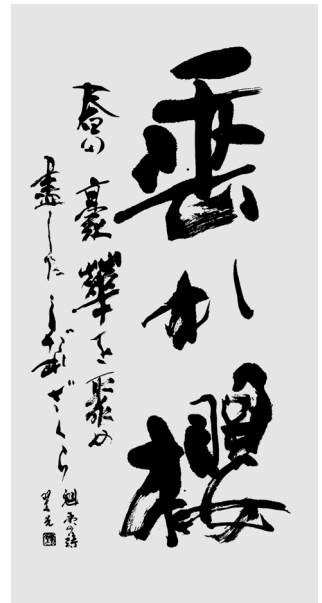 垂れ櫻
春の豪華を聚め
盡した しだれざくら
魁夷の詩